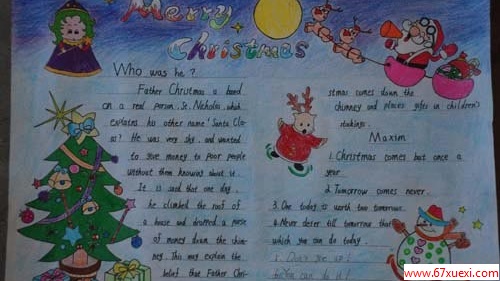 Merry
Christmas
Who was he?
Father Christmas is based
on a real person, St. Nicholas, which
explains his other name 'Santa Cla-
us'? He was very shy and wanted
to give money to poor people
without them knowing about it.
It is said that one day,
he climbed the roof of
a house and dropped a purse
of money down the chim-
ney. This may explain the
belief that Father Chri-
stmas comes down the
chimney and places gifts in children's
stockings.
Maxim
1. Christmas comes but once a
year.
2. Tomorrow comes never.
3. One today is worth two tomorrows.
4. Never defer till tomorrow that
which you can do today.
you can do it!
www.67xuexi.com